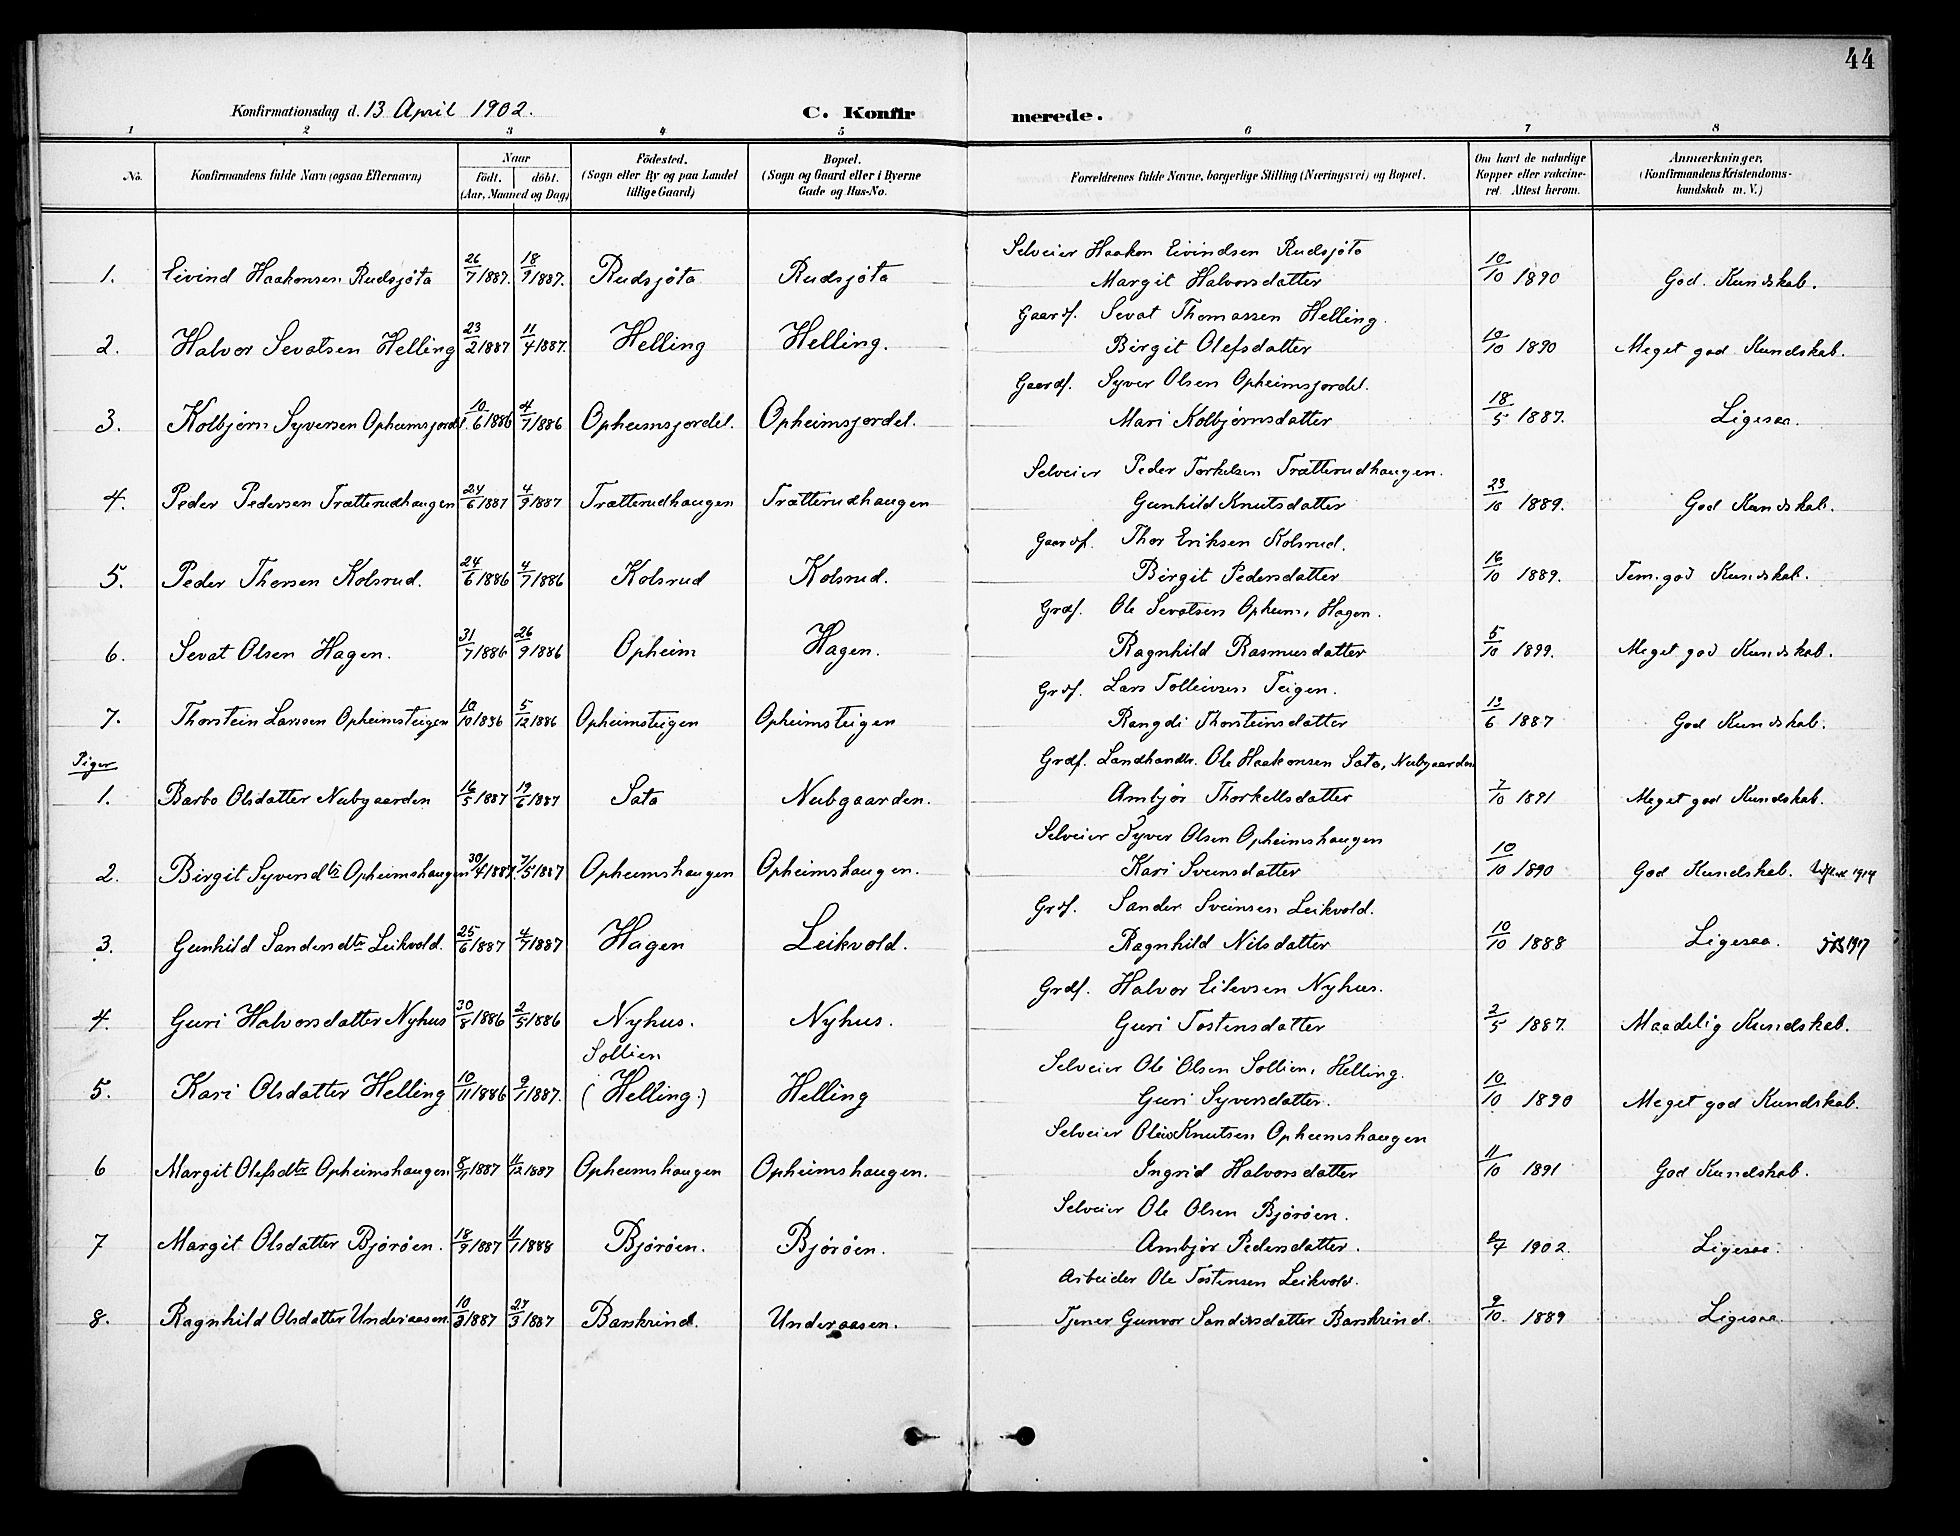 44
Konfirmationsdag d. 13 April 1902.
C. Konfirmerede.
1 2 3 4 5 6 7 8
No. | Konfirmandens fulde Navn (ogsaa Efternavn) | Naar födt. döbt. (Aar, Maaned og Dag) | Födested. (Sogn eller By og paa Landet tillige Gaard) | Bopæl. (Sogn og Gaard eller i Byerne Gade og Hus-No. | Forældrenes fulde Navne, borgerlige Stilling (Næringsvei) og Bopæl. | Om havt de naturlige Kopper eller vakcineret. Attest herom. | Anmærkninger, (Konfirmandens Kristendomskundskab m. V.)
Selveier Haakon Eivindsen Rudsjøta
1. Eivind Haakonsen Rudsjøta 26/7 1887. 18/9 1887. Rudsjøta Rudsjøta Margit Halvorsdatter 10/10 1890 God Kundskab.
Gaardf. Sevat Thomassen Helling
2. Halvor Sevatsen Helling 23/2 1887 11/4 1887. Helling Helling. Birgit Olefsdatter 10/10 1890 Meget god Kundskab.
Gaardf. Syver Olsen Opheimsjordet.
3. Kolbjørn Syversen Opheimsjordet. 10/6 1886 4/7 1886 Opheimsjordet. Opheimsjordet. Mari Kolbjørnsdatter 18/5 1887. Ligesaa.
Selveier Peder Torkelsen Trætterudhaugen.
4. Peder Pedersen Trætterudhaugen 24/6 1887 4/9 1887 Trætterudhaugen Trætterudhaugen Gunhild Knutsdatter 23/10 1889. God Kundskab.
Gaardf. Thor Eriksen Kolsrud.
5. Peder Thorsen Kolsrud. 24/6 1886 4/7 1886 Kolsrud Kolsrud. Birgit Pedersdatter 16/10 1889. Tem. god Kundskab.
Grdf. Ole Sevatsen Opheim, Hagen.
6. Sevat Olsen Hagen. 31/7 1886 26/9 1886 Opheim Hagen. Ragnhild Rasmusdatter 5/10 1899. Meget god Kundskab.
Grdf. Lars Tolleivsen Teigen.
7. Thorstein Larssen Opheimsteigen 10/10 1886 5/12 1886 Opheimsteigen Opheimsteigen Rangdi Thorsteinsdatter 13/6 1887 God Kundskab.
Piger
Grdf. Landhandlr. Ole Haakonsen Sata, Nubgaarden
1. Barbo Olsdatter Nubgaarden 16/5 1887 19/6 1887 Sata Nubgaarden. Ambjør Thorkellsdatter 7/10 1891 Meget god Kundskab.
Selveier Syver Olsen Opheimshaugen
2. Birgit Syversdtr Opheimshaugen 30/4 1887. 7/5 1887 Opheimshaugen Opheimshaugen. Kari Svensdatter 10/10 1890 God Kundskab. 1914
Grdf. Sander Sveinsen Leikvold.
3. Gunhild Sandersdtr Leikvold. 25/6 1887 4/7 1887 Hagen Leikvold. Ragnhild Nilsdatter 10/10 1888 Ligesaa. 1917
Grdf. Halvor Eilevsen Nyhus.
4. Guri Halvorsdatter Nyhus 30/8 1886 2/5 1886 Nyhus. Nyhus. Guri Tostensdatter 2/5 1887. Maadelig Kundskab.
Sollien Selveier Ole Olsen Sollien, Helling.
5. Kari Olsdatter Helling 10/11 1886 9/1 1887. (Helling.) Helling Guri Syversdatter. 10/10 1890 Meget god Kundskab.
Selveier Knutsen Opheimshaugen
6 Margit Olefsdtr Opheimshaugen 8/11 1887 11/12 1887 Opheimshaugen Opheimshaugen. Ingrid Halvorsdatter 11/10 1891 God Kundskab.
Selveier Ole Olsen Bjørøen.
7 Margit Olsdatter Bjørøen. 18/9 1887 11/1 1888 Bjørøen. Bjørøen. Ambjør Pedersdatter. 1902. Ligesaa.
Arbeider Ole Tostensen Leikvold.
8. Ragnhild Olsdatter Underaasen 10/3 1887 27/3 1887 Barskrind. Underaasen. Tjener Gunvor Sandersdatter Barskrind. 9/10. 1889 Ligesaa.